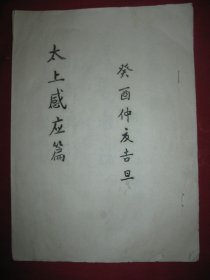 癸酉仲夏吉旦
太上感应篇